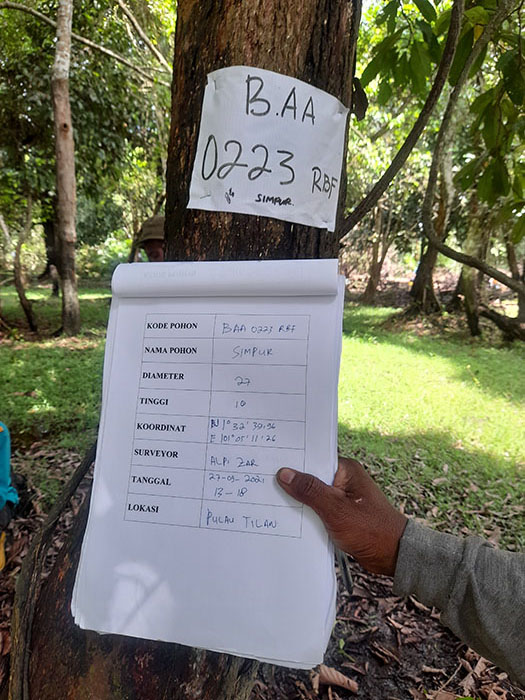 B.AA
0223 RBF
SIMPUR
KODE POHON BAA 0223 RBF
NAMA POHON SIMPUR
DIAMETER 27
TINGGI 10
KOORDINAT N 1° 32' 39.96
E 101° 01' 11.26
SURVEYOR ALPI ZAR
TANGGAL 27-05-2021
13-18
LOKASI PULAU TILAN